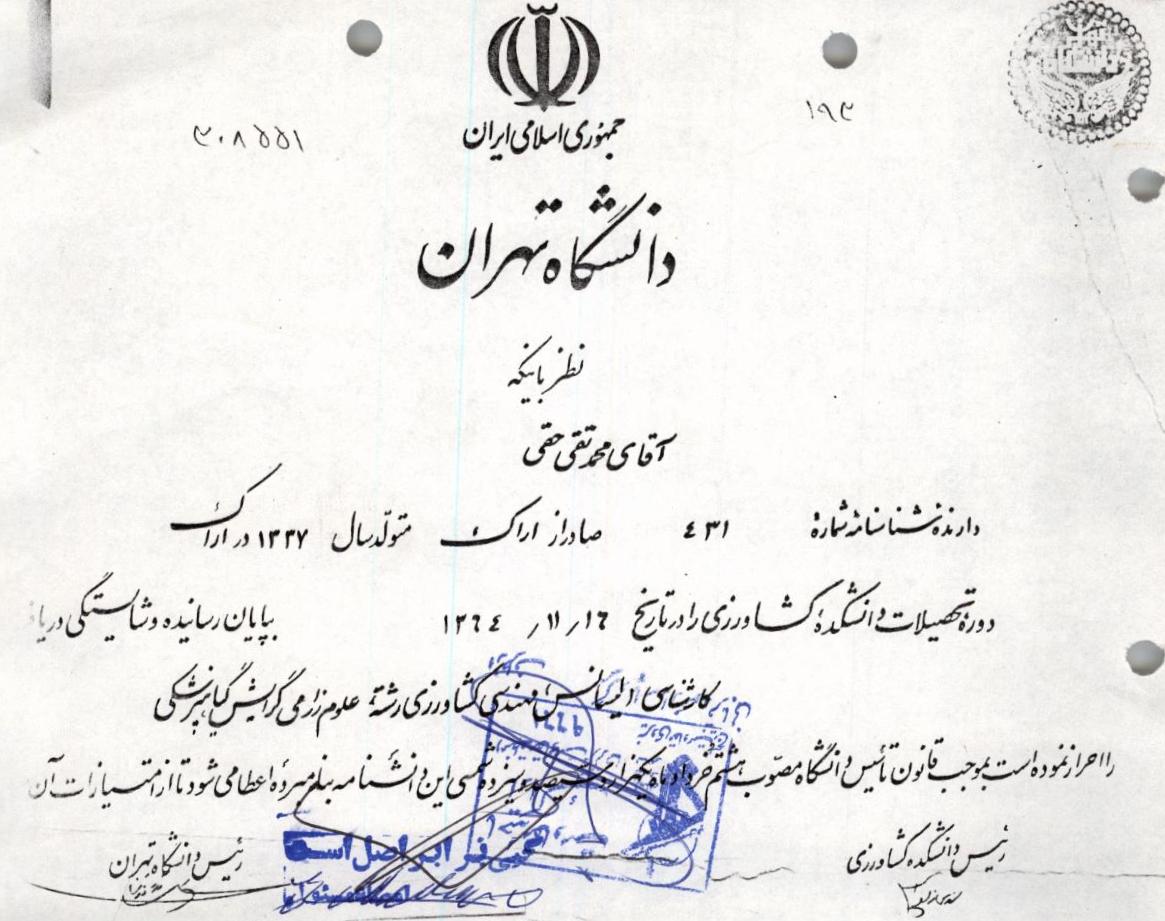 ۳۰۸۵۵۱
۱۹۳
جمهوری اسلامی ایران
دانشگاه تهران
نظر باینکه
آقای محمد تقی حقی
دارنده شناسنامه شماره ۴۳۱ صادر از اراک متولد سال ۱۳۳۷ در اراک
دوره تحصیلات دانشکده کشاورزی را در تاریخ ۱۶ / ۱۱ / ۱۳۶۴ بپایان رسانیده و شایستگی
کارشناسی (لیسانس) مهندسی کشاورزی رشته علوم زراعی گرایش گیاهپزشکی
را احراز نموده است بموجب قانون تأسیس دانشگاه مصوب هشتم خرداد ماه یکهزار و سیصد و سیزده شمسی این دانشنامه بنامبرده اعطا می شود تا از امتیازات آن
رئیس دانشکده کشاورزی
رئیس دانشگاه تهران
کپی برابر اصل است